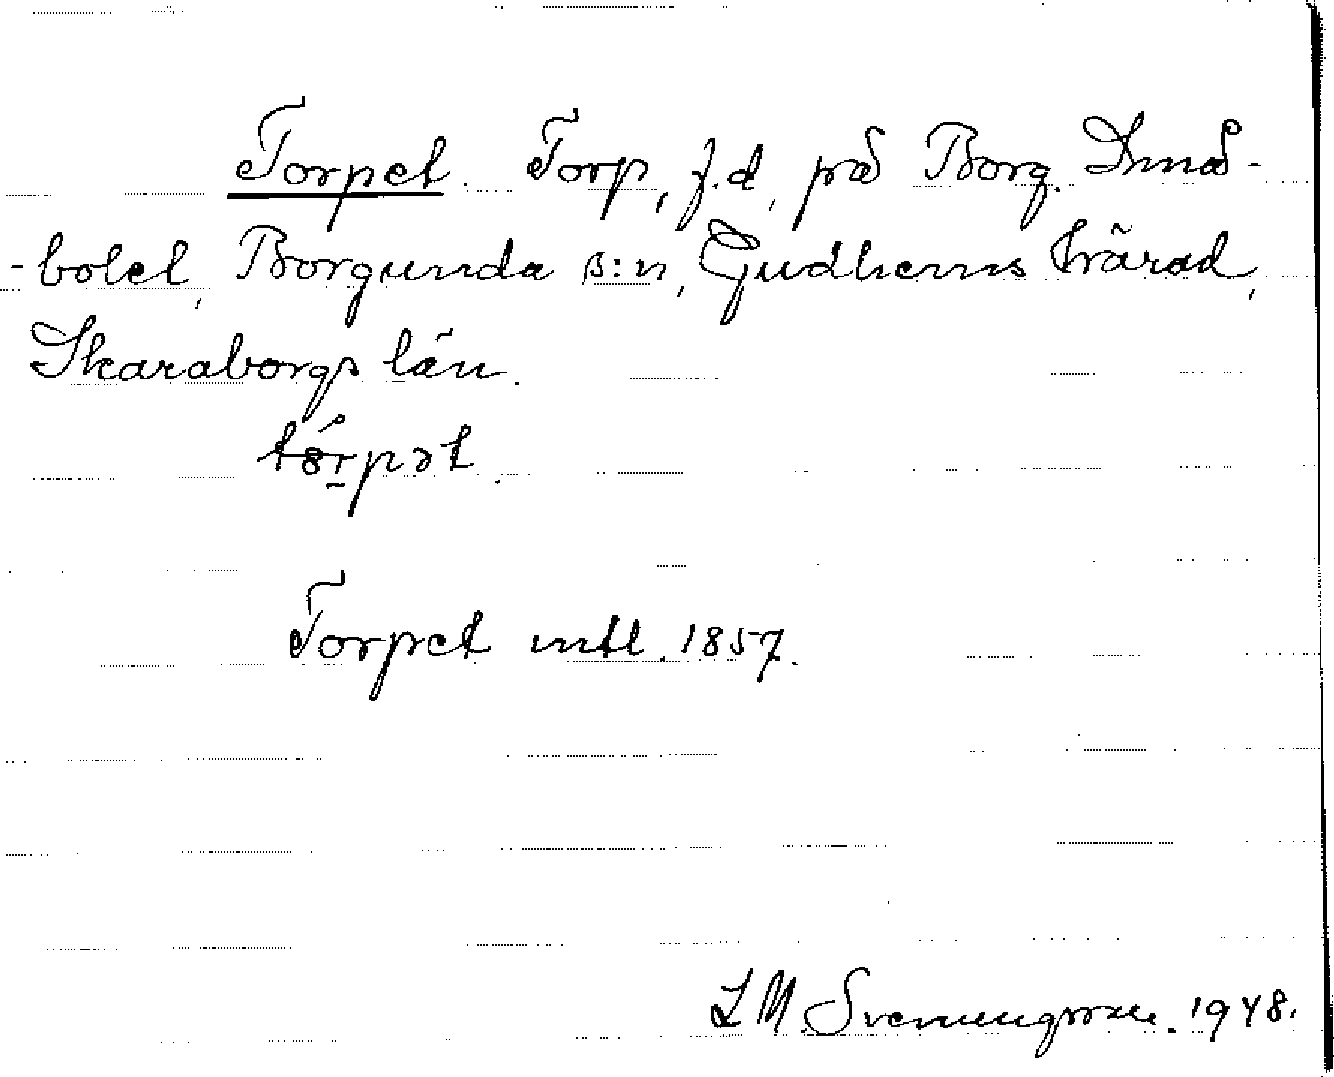 Torpet. Torp, f.d. på Borg. Små-
-bolet, Borgunda s:n, Gudhems härad,
Skaraborgs län.
tórpət.
Torpet mtl. 1857.
L M Svenungsson. 1948.